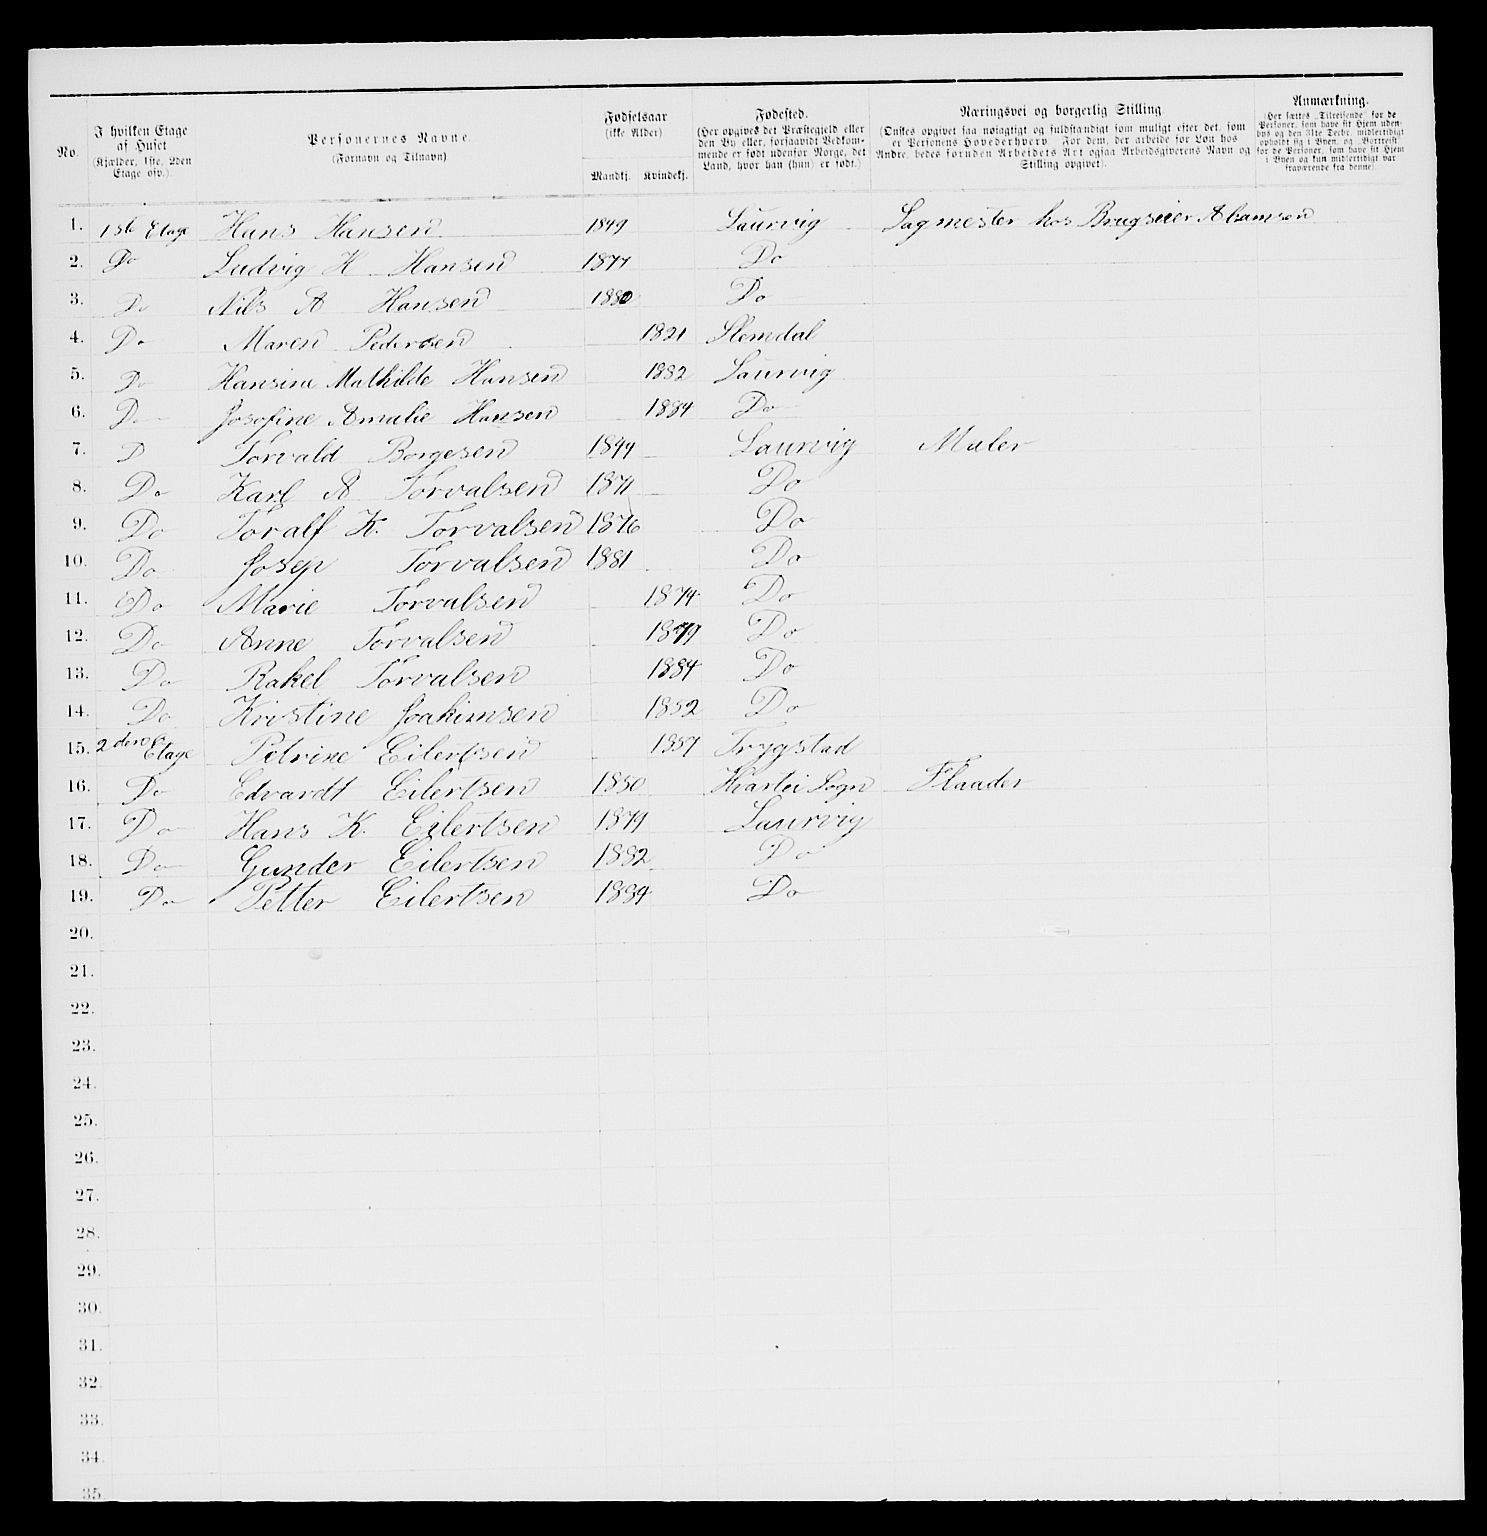 No.
I hvilken Etage af Huset (Kjælder, 1ste, 2den Etage osv.).
Personernes Navne. (Fornavn og Tilnavn)
Fødselsaar (ikke Alder)
Mandkj. Kvindekj.
Fødested. (Her opgives det Præstegjeld eller den By eller, forsaavidt Vedkommende er født udenfor Norge, det Land, hvor han (hun) er født.)
Næringsvei og borgerlig Stilling. (Ønskes opgivet saa nøiagtigt og fuldstændigt som muligt efter det, som er Personens Hovederhverv For dem, der arbeide for Løn hos Andre, bedes foruden Arbeidets Art ogsaa Arbeidsgiverens Navn og Stilling opgivet).
Anmærkning. (Her sættes „Tilreisende" for de Personer, som have sit Hjem udenbys og den 31te Decbr. midlertidigt opholdt sig i Byen, og „Bortreist" for de Personer, som have sit Hjem i Byen og kun midlertidigt var fraværende fra denne).
1. 1ste Etage Hans Hansen 1849 Laurvig Sagmester hos Brugseier
2. Do Ludvig H Hansen 1877 Do
3. Do Nils A Hansen 1880 Do
4. Do Maren Pedersen 1821 Slemdal
5. Do Hansine Mathilde Hansen 1882 Laurvig
6. Do Josofine Amalie Hansen 1884 Do
7. D Torvald Borgesen 1844 Laurvig Maler
8. Do Karl A Torvalsen 1871 Do
9. Do Toralf K. Torvalsen 1876 Do
10. Do Josep Torvalsen 1881 Do
11. Do Marie Torvalsen 1874 Do
12. Do Anne Torvalsen 1879 Do
13. Do Rakel Torvalsen 1884 Do
14. Do Kristine Joakimsen 1852 Do
15. 2den Etage Petrine Eilertsen 1857 Trygstad
16. Do Edvardt Eilertsen 1850 Sogn
17. Do Hans K. Eilertsen 1879 Laurvig
18. Do Gunder Eilertsen 1882 Do
19. Do Petter Eilertsen 1884 Do
20.
21.
22.
23.
24.
25.
26.
27.
28.
29.
30.
31.
32.
33.
34.
35